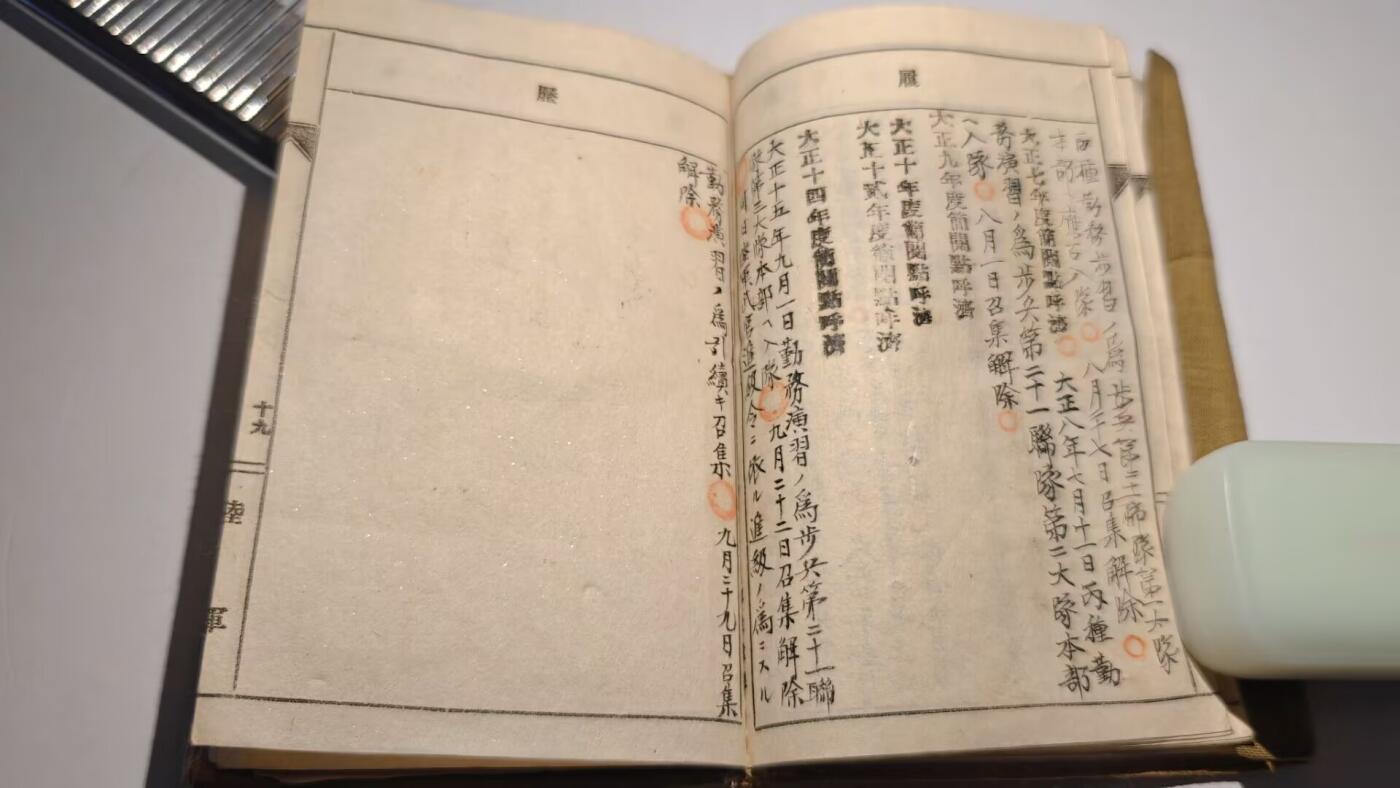 履
丙種勤務演習ノ為歩兵第二十一聯隊第一大隊
本部ヘ入隊 八月二十七日召集解除
大正七年度簡閲點呼濟 大正八年七月十一日丙種勤
務演習ノ為歩兵第二十一聯隊第二大隊本部
ヘ入隊 八月一日召集解除
大正九年度簡閲點呼濟
大正十年度簡閲點呼濟
大正十貳年度簡閲點呼濟
大正十四年度簡閲點呼濟
大正十五年九月一日勤務演習ノ為歩兵第二十一聯
隊第三大隊本部ヘ入隊 九月二十二日召集解除
進級令ニ依ル進級ノ為ニスル
歷
勤務演習ノ為引續キ召集 九月二十九日召集
解除
十九
陸
軍